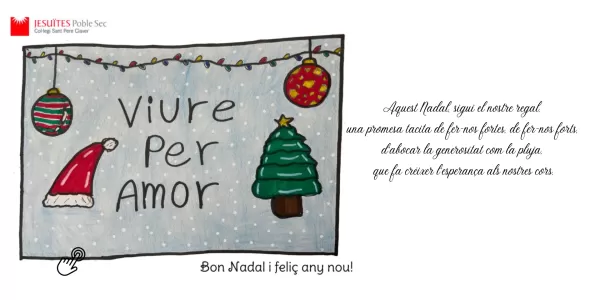 JESUÏTES Poble Sec
Col·legi Sant Pere Claver
Viure
Per
Amor
Aquest Nadal, sigui el nostre regal:
una promesa tàcita de fer-nos fortes, de fer-nos forts,
d'abocar la generositat com la pluja,
que fa créixer l'esperança als nostres cors.
Bon Nadal i feliç any nou!